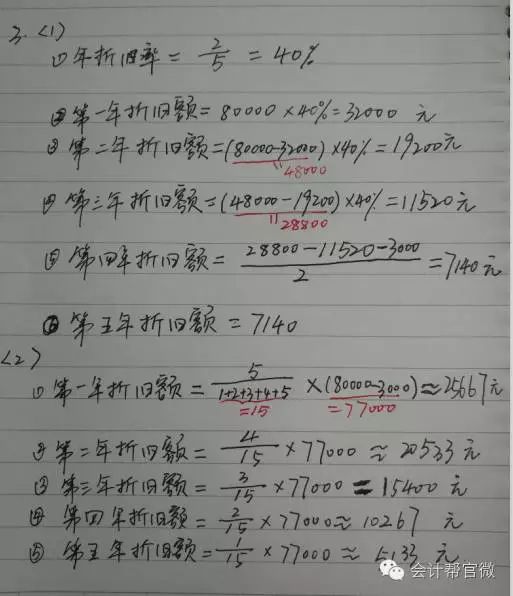 3. <1)
① 年折旧率 = 2/5 = 40%
② 第一年折旧额 = 80000 × 40% = 32000 元
③ 第二年折旧额 = (80000-32000) × 40% = 19200元
48000
④ 第三年折旧额 = (48000-19200) × 40% = 11520元
28800
⑤ 第四年折旧额 = (28800-11520-3000)/2 = 7140元
⑥ 第五年折旧额 = 7140
<2)
① 第一年折旧额 = 5/(1+2+3+4+5) × (80000-3000) ≈ 25667元
=15 =77000
② 第二年折旧额 = 4/15 × 77000 ≈ 20533 元
③ 第三年折旧额 = 3/15 × 77000 = 15400 元
④ 第四年折旧额 = 2/15 × 77000 ≈ 10267 元
⑤ 第五年折旧额 = 1/15 × 77000 ≈ 5133 元
会计帮官微